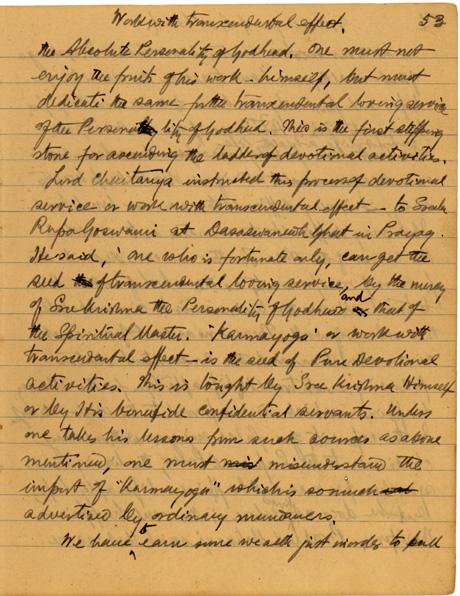 Work with transcendental effect. 53
the Absolute Personality of Godhead. One must not
enjoy the fruits of his work himself, but must
dedicate the same for the transcendental loving service
of the Personality of Godhead. This is the first stepping
stone for ascending the ladder of devotional activities.
Lord Chaitanya instructed this process of devotional
service or work with transcendental effect - to Srila
Rupa Goswami at Dasaswamedh Ghat in Prayag.
He said, 'one who is fortunate only, can get the
seed of transcendental loving service, by the mercy
of Sree Krishna the Personality of Godhead and that of
the Spiritual Master. 'Karmayoga' or work with
transcendental effect - is the seed of Pure Devotional
activities. This is tought by Sree Krishna Himself
or by His benefide confidential servants. Unless
one takes his lessons from such sources as above
mentioned, one must misunderstand the
import of "Karmayoga" which is so much
advertised by ordinary mundaners.
We have to earn some wealth just in order to pull